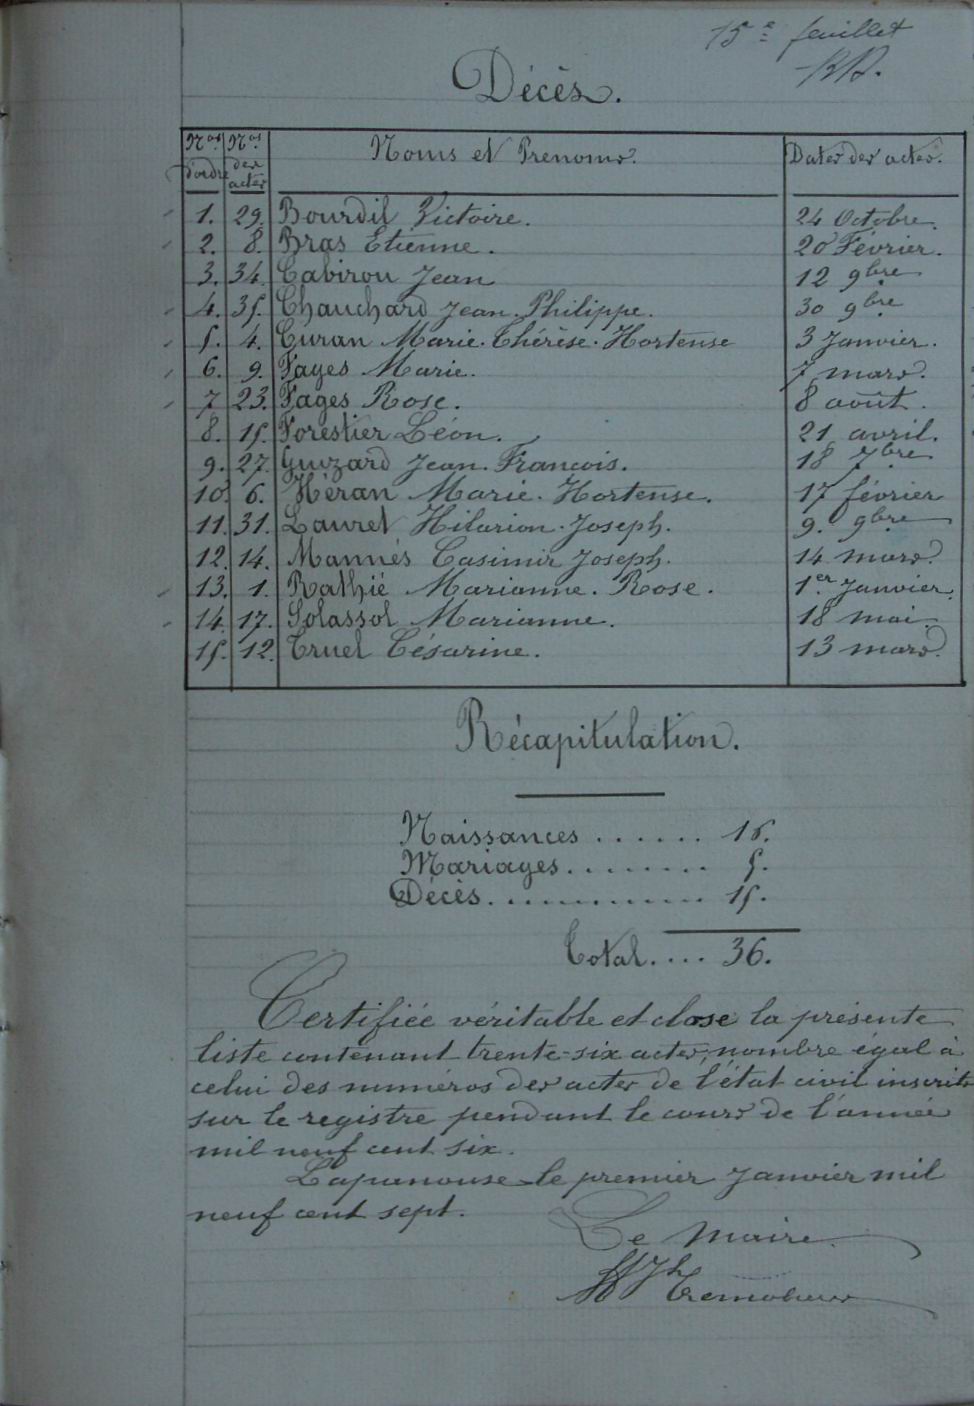 15e feuillet
Décès.
Nos d'ordre Nos des actes Noms et Prénoms. Dates des actes.
1. 29. Bourdil Victoire. 24 Octobre.
2. 8. Bras Etienne. 20 Février.
3. 34. Cabirou Jean 12 9bre
4. 35. Chauchard Jean-Philippe. 30 9bre
5. 4. Curan Marie-Thérèse-Hortense 3 Janvier.
6. 9. Fages Marie. 7 mars.
7 23. Fages Rose. 8 août.
8. 15. Forestier Léon. 21 avril.
9. 27. Guizard Jean-François. 18 7bre
10. 6. Héran Marie-Hortense. 17 février
11. 31. Lauret Hilarion-Joseph. 9. 9bre
12. 14. Mannés Casimir Joseph. 14 mars.
13. 1. Rathié Marianne-Rose. 1er Janvier.
14. 17. Solassol Marianne. 18 mai.
15. 12. Truel Césarine. 13 mars.
Récapitulation.
Naissances ....... 16.
Mariages........ 5.
Décès............. 15.
Total.... 36.
Certifiée véritable et close la présente
liste contenant trente-six actes, nombre égal à
celui des numéros des actes de l'état civil inscrits
sur le registre pendant le cours de l'année
mil neuf cent six.
Lapanouse le premier Janvier mil
neuf cent sept.
Le Maire.